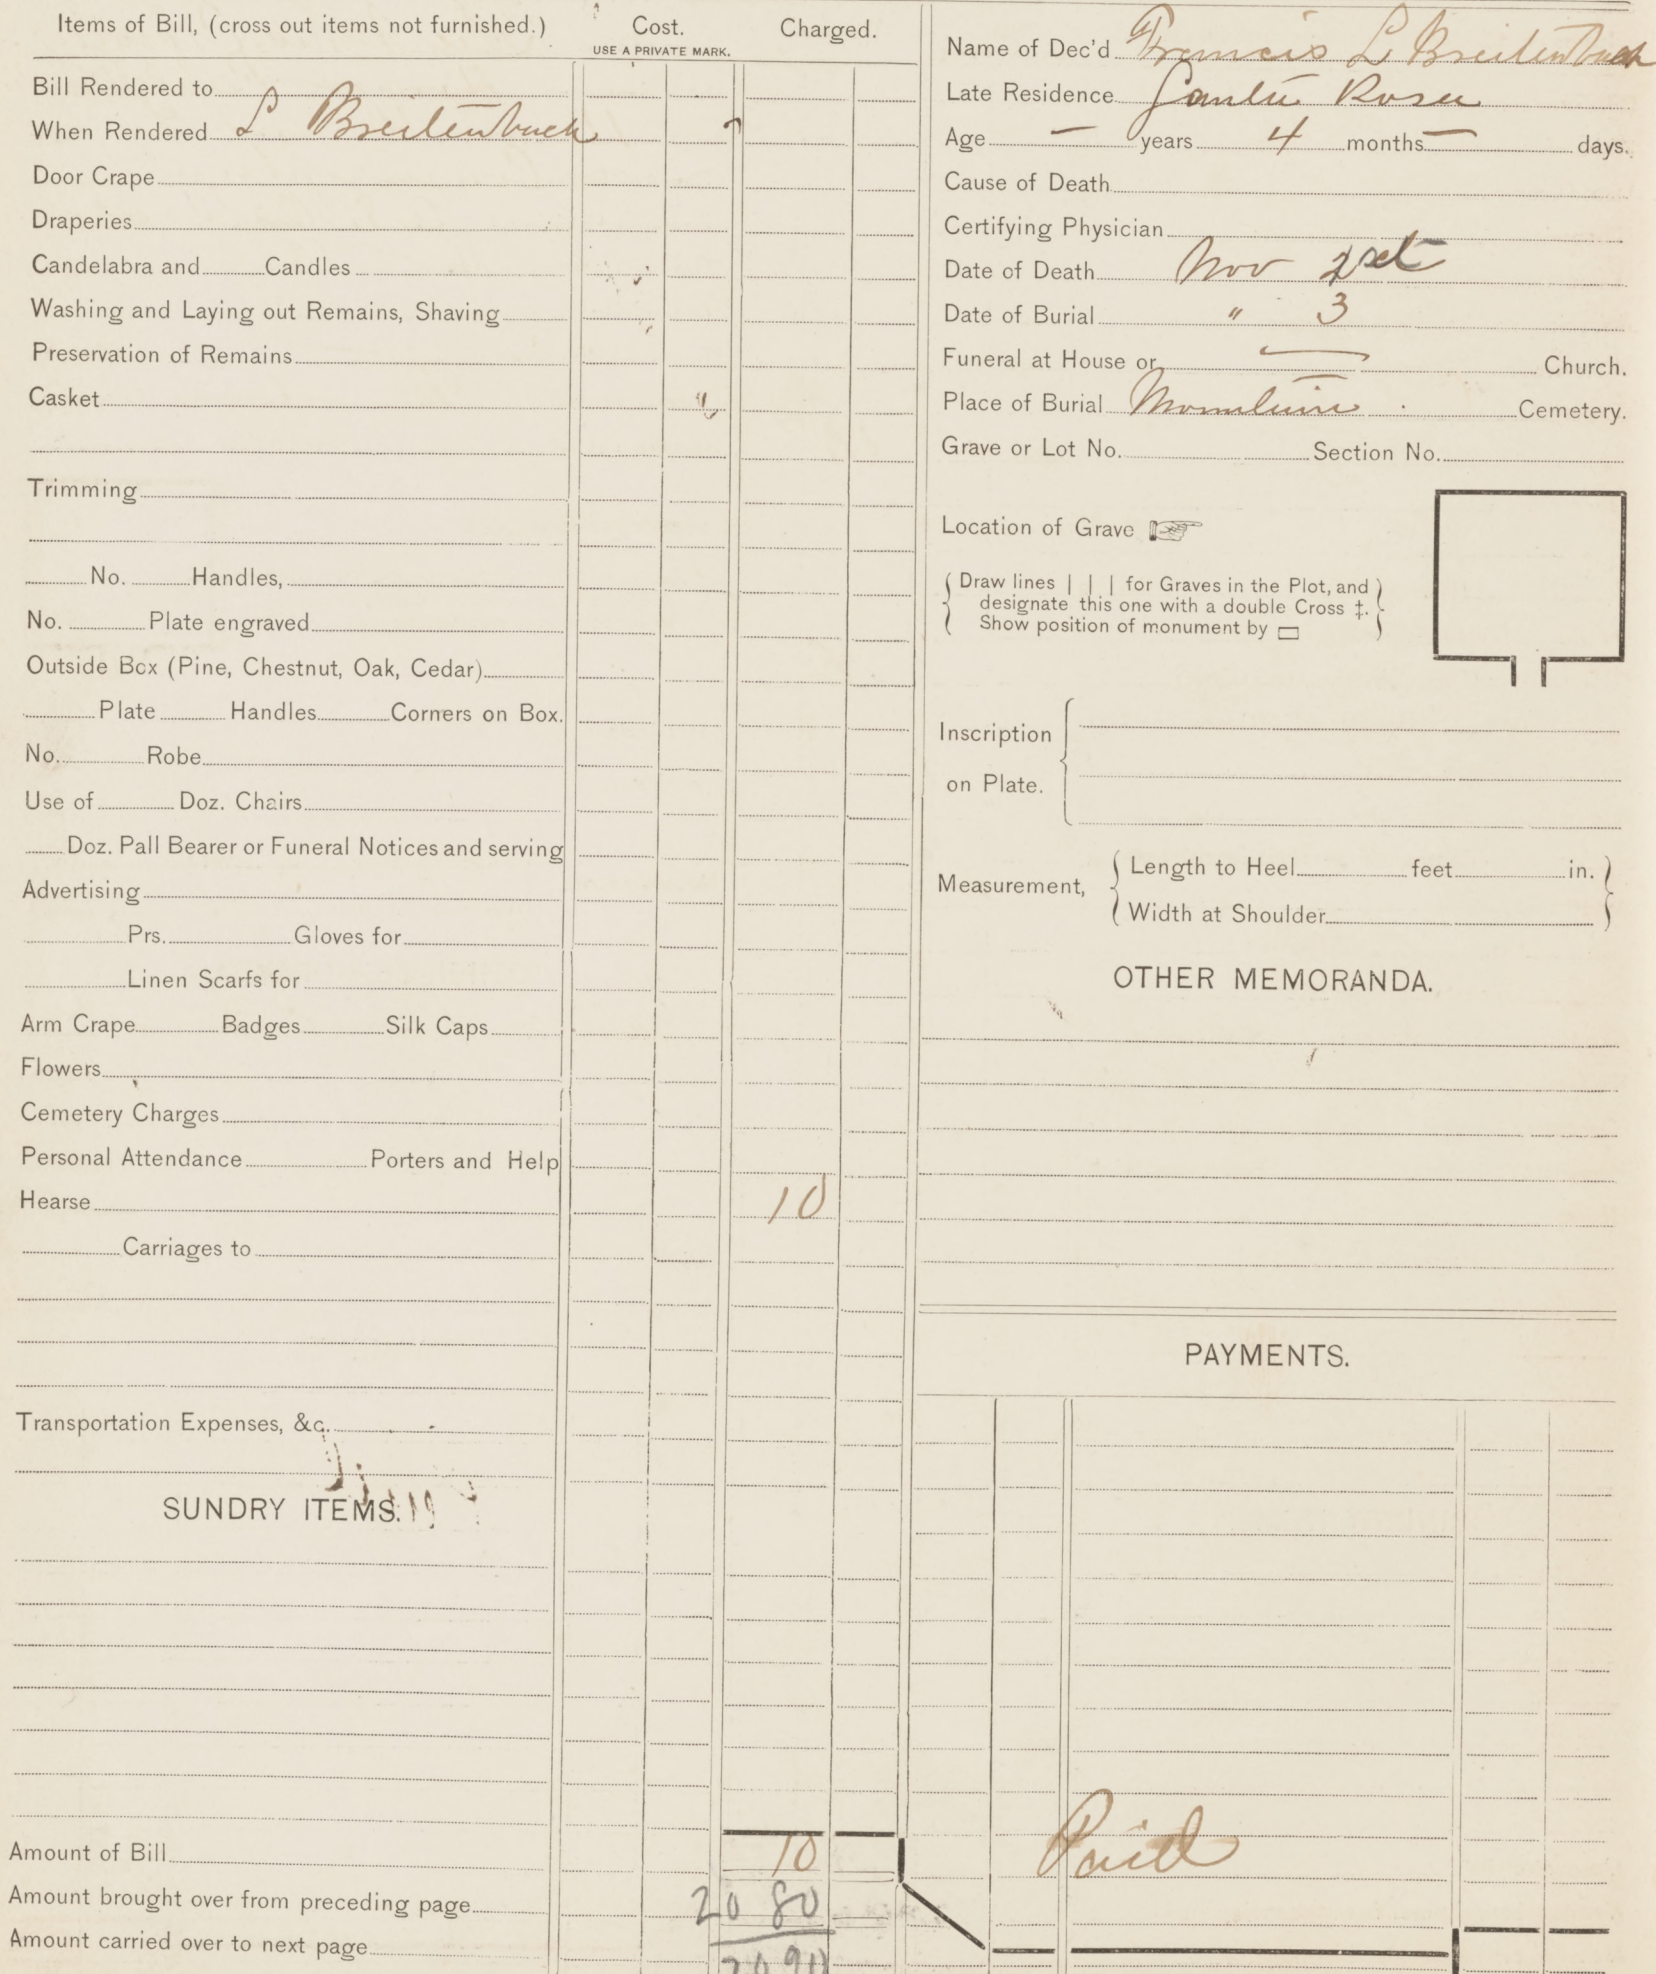 Items of Bill, (cross out items not furnished.) Cost. Charged.
USE A PRIVATE MARK.
Bill Rendered to
When Rendered L Breitenbach
Door Crape
Draperies
Candelabra and Candles
Washing and Laying out Remains, Shaving
Preservation of Remains
Casket
Trimming
No. Handles,
No. Plate engraved
Outside Box (Pine, Chestnut, Oak, Cedar)
Plate Handles Corners on Box.
No. Robe
Use of Doz. Chairs
Doz. Pall Bearer or Funeral Notices and serving
Advertising
Prs. Gloves for
Linen Scarfs for
Arm Crape Badges Silk Caps
Flowers
Cemetery Charges
Personal Attendance Porters and Help
Hearse 10
Carriages to
Transportation Expenses, &c.
SUNDRY ITEMS.
Amount of Bill 10
Amount brought over from preceding page 20 80
Amount carried over to next page 20 90
Name of Dec'd Francis L Breitenbach
Late Residence Santa Rosa
Age — years 4 months — days.
Cause of Death
Certifying Physician
Date of Death Nov
Date of Burial " 3
Funeral at House or — Church.
Place of Burial Cemetery.
Grave or Lot No. Section No.
Location of Grave
Draw lines | | | for Graves in the Plot, and
designate this one with a double Cross ‡.
Show position of monument by
Inscription
on Plate.
Measurement,
Length to Heel feet in.
Width at Shoulder
OTHER MEMORANDA.
PAYMENTS.
Paid